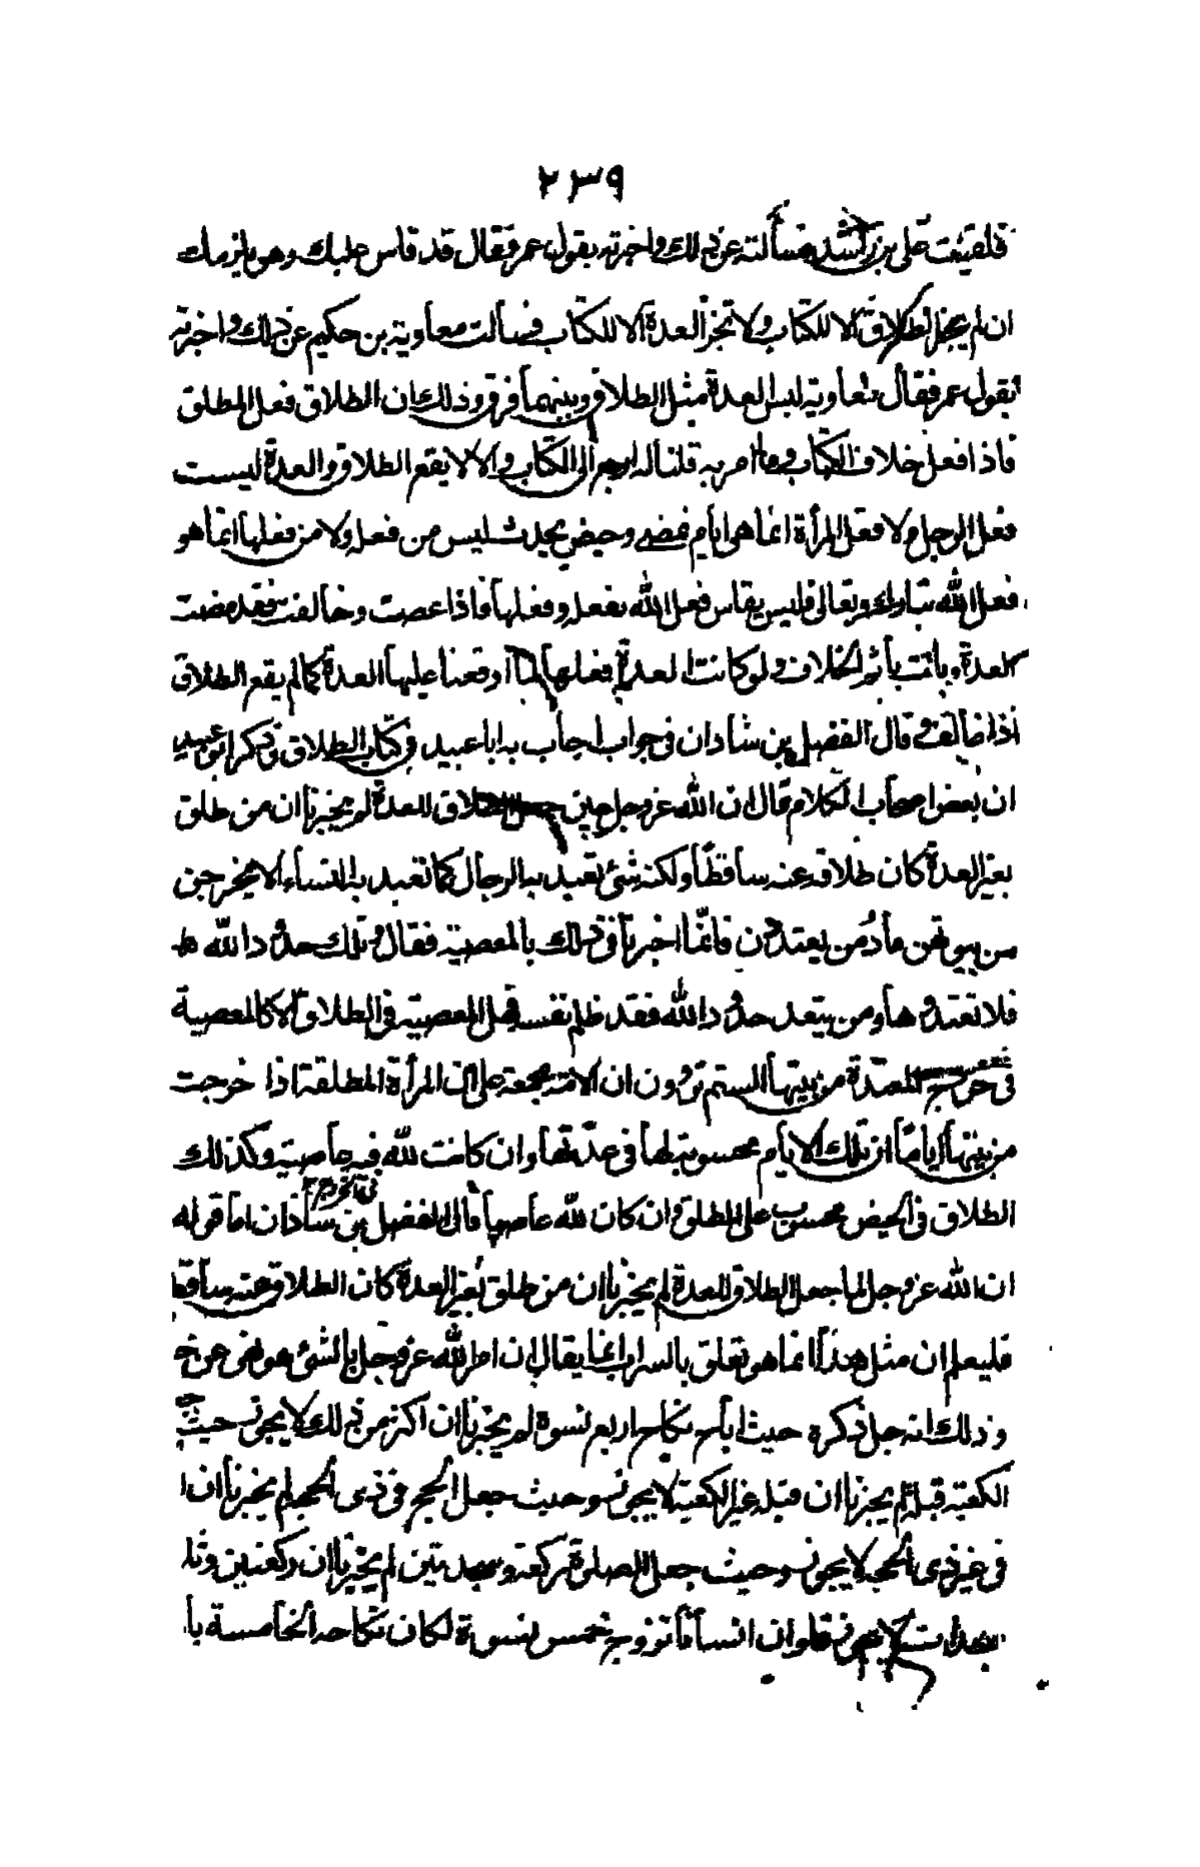 ٢٣٩
فلقيت علي بن راشد فسألته عن ذلك واخبرته بقول عمر فقال قد قاس عليك وهو يلزمك
ان لم يجز الطلاق الا للكتاب ولا تجز العدة الا للكتاب فسألت معاوية بن حكيم عن ذلك واخبرته
بقول عمر فقال معاوية ليس العدة مثل الطلاق وبينهما فرق وذلك ان الطلاق فعل المطلق
فاذا فعل خلاف الكتاب وما امر به قلنا له ارجع الى الكتاب والا لا يقع الطلاق والعدة ليست
فعل الرجل ولا فعل المرأة انما هي ايام تمضي وحيض يحدث ليس من فعله ولا من فعلها انما هو
فعل الله تبارك وتعالى فليس يقاس فعل الله بفعله وفعلها فاذا عصت وخالفت فقد مضت
العدة وباءت بأثم الخلاف ولو كانت العدة فعلها لما اوقعنا عليها العدة كما لم يقع الطلاق
اذا خالف وقال الفضل بن شاذان في جواب اجاب به ابا عبيد في كتاب الطلاق وذكر ابو عبيد
ان بعض اصحاب الكلام قال ان الله عز وجل حين جعل الطلاق للعدة لم يخبرنا ان من طلق
بغير العدة كان طلاقه عنه ساقطا ولكنه شئ تعبد به الرجال كما تعبد به النساء الا يخرجن
من بيوتهن ما دمن يعتددن فانما اخبرنا في ذلك بالمعصية فقال وتلك حدود الله
فلا تعتدوها ومن يتعد حدود الله فقد ظلم نفسه فهل المعصية في الطلاق الا كالمعصية
في خروج المعتدة من بيتها الستم ترون ان الامة مجمعة على ان المرأة المطلقة اذا خرجت
من بيتها اياما ان تلك الايام محسوبة لها في عدتها وان كانت لله فيه عاصية وكذلك
الطلاق في الحيض محسوب على المطلق وان كان لله عاصيا قال الفضل بن شاذان اما قوله
ان الله عز وجل لما جعل الطلاق للعدة لم يخبرنا ان من طلق لغير العدة كان الطلاق عنه ساقطا
فليعلم ان مثل هذا انما هو تعلق بالسراب انما يقال ان امر الله عز وجل بالشئ هو نهي عن خ
وذلك انه جل ذكره حيث اباح نكاح اربع نسوة لم يخبرنا ان اكثر من ذلك لا يجوز وحيث
الكعبة قبلة لم يخبرنا ان قبلة غير الكعبة لا يجوز وحيث جعل الحج في ذي الحجه لم يخبرنا ان ا
في غير ذي الحجه لا يجوز وحيث جعل الصلوة ركعة وسجدتين لم يخبرنا ان ركعتين وثلا
سجدات لا يجوز فلو ان انسانا تزوج خمس نسوة لكان نكاحه الخامسة با